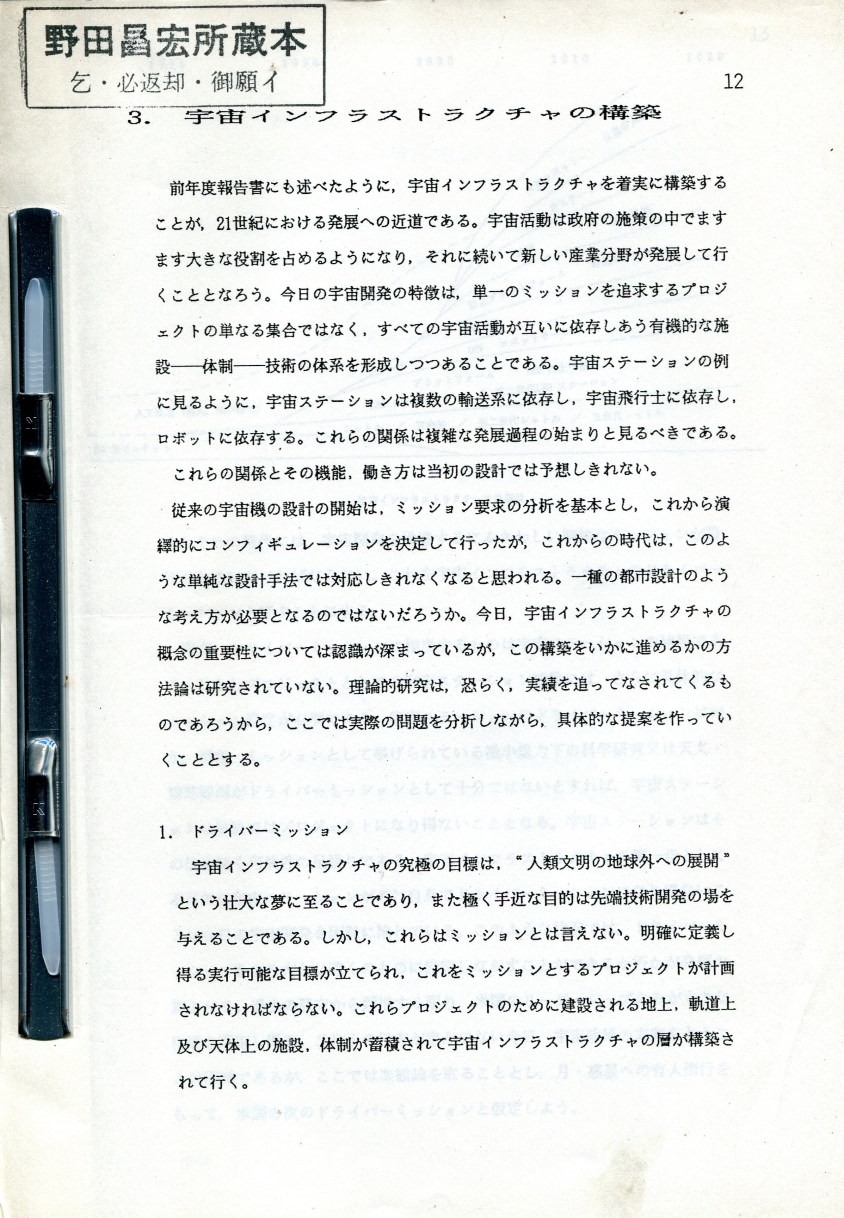 野田昌宏所蔵本
乞・必返却・御願イ
12
3. 宇宙インフラストラクチャの構築
前年度報告書にも述べたように，宇宙インフラストラクチャを着実に構築する
ことが，21世紀における発展への近道である。宇宙活動は政府の施策の中でます
ます大きな役割を占めるようになり，それに続いて新しい産業分野が発展して行
くこととなろう。今日の宇宙開発の特徴は，単一のミッションを追求するプロジ
ェクトの単なる集合ではなく，すべての宇宙活動が互いに依存しあう有機的な施
設――体制――技術の体系を形成しつつあることである。宇宙ステーションの例
に見るように，宇宙ステーションは複数の輸送系に依存し，宇宙飛行士に依存し，
ロボットに依存する。これらの関係は複雑な発展過程の始まりと見るべきである。
これらの関係とその機能，働き方は当初の設計では予想しきれない。
従来の宇宙機の設計の開始は，ミッション要求の分析を基本とし，これから演
繹的にコンフィギュレーションを決定して行ったが，これからの時代は，このよ
うな単純な設計手法では対応しきれなくなると思われる。一種の都市設計のよう
な考え方が必要となるのではないだろうか。今日，宇宙インフラストラクチャの
概念の重要性については認識が深まっているが，この構築をいかに進めるかの方
法論は研究されていない。理論的研究は，恐らく，実績を追ってなされてくるも
のであろうから，ここでは実際の問題を分析しながら，具体的な提案を作ってい
くこととする。
1. ドライバーミッション
宇宙インフラストラクチャの究極の目標は，“人類文明の地球外への展開”
という壮大な夢に至ることであり，また極く手近な目的は先端技術開発の場を
与えることである。しかし，これらはミッションとは言えない。明確に定義し
得る実行可能な目標が立てられ，これをミッションとするプロジェクトが計画
されなければならない。これらプロジェクトのために建設される地上，軌道上
及び天体上の施設，体制が蓄積されて宇宙インフラストラクチャの層が構築さ
れて行く。